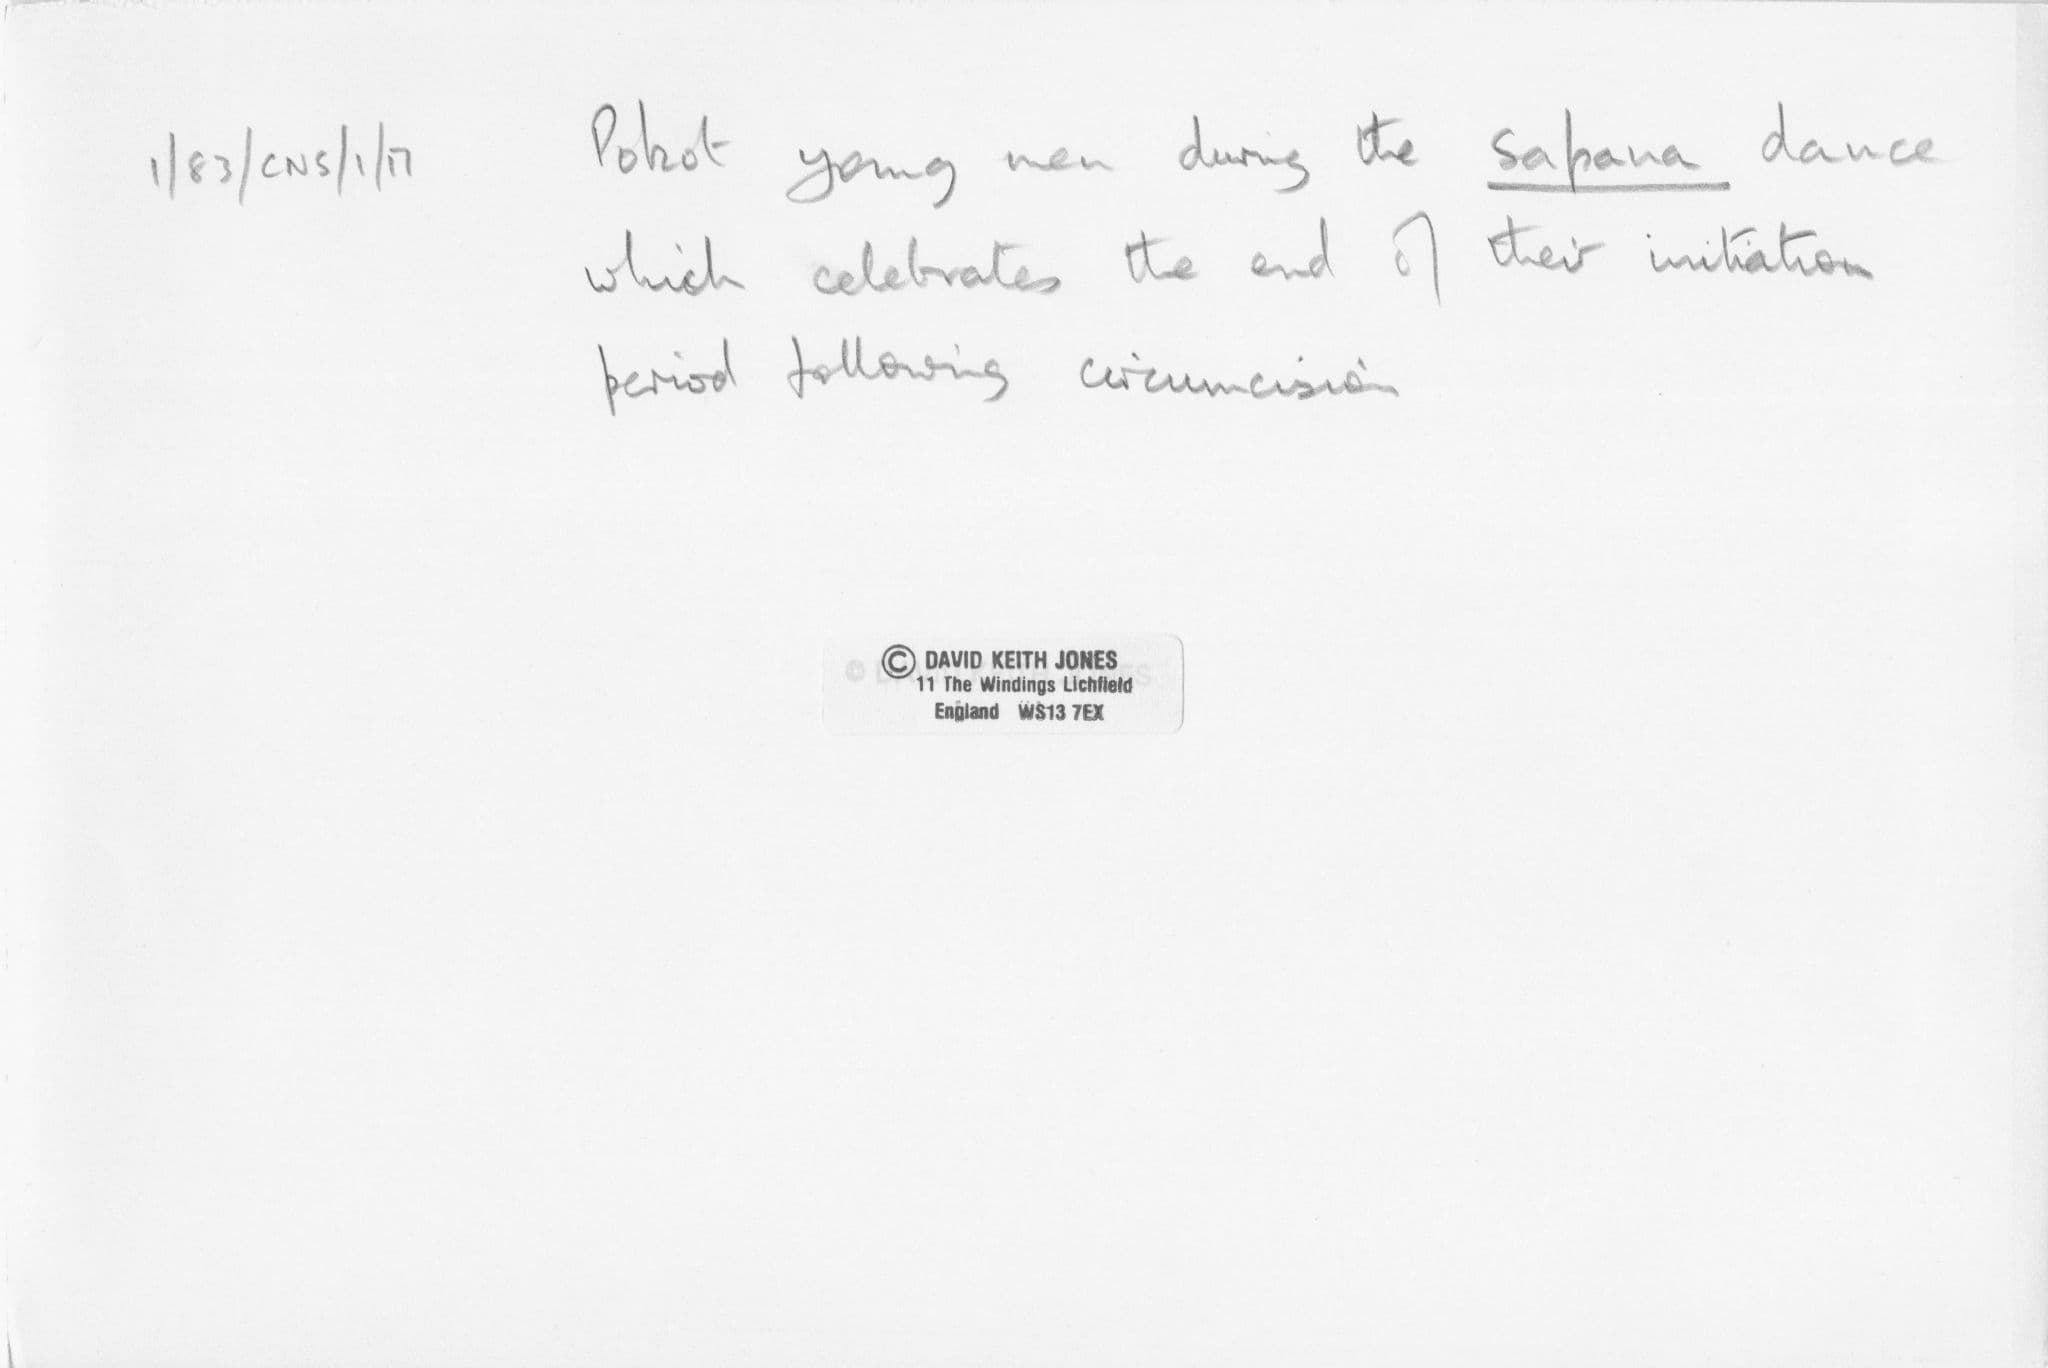 1/83/CNS/1/17
Pokot young men during the sapana dance
which celebrates the end of their initiation
period following circumcision
© DAVID KEITH JONES
11 The Windings Lichfield
England WS13 7EX